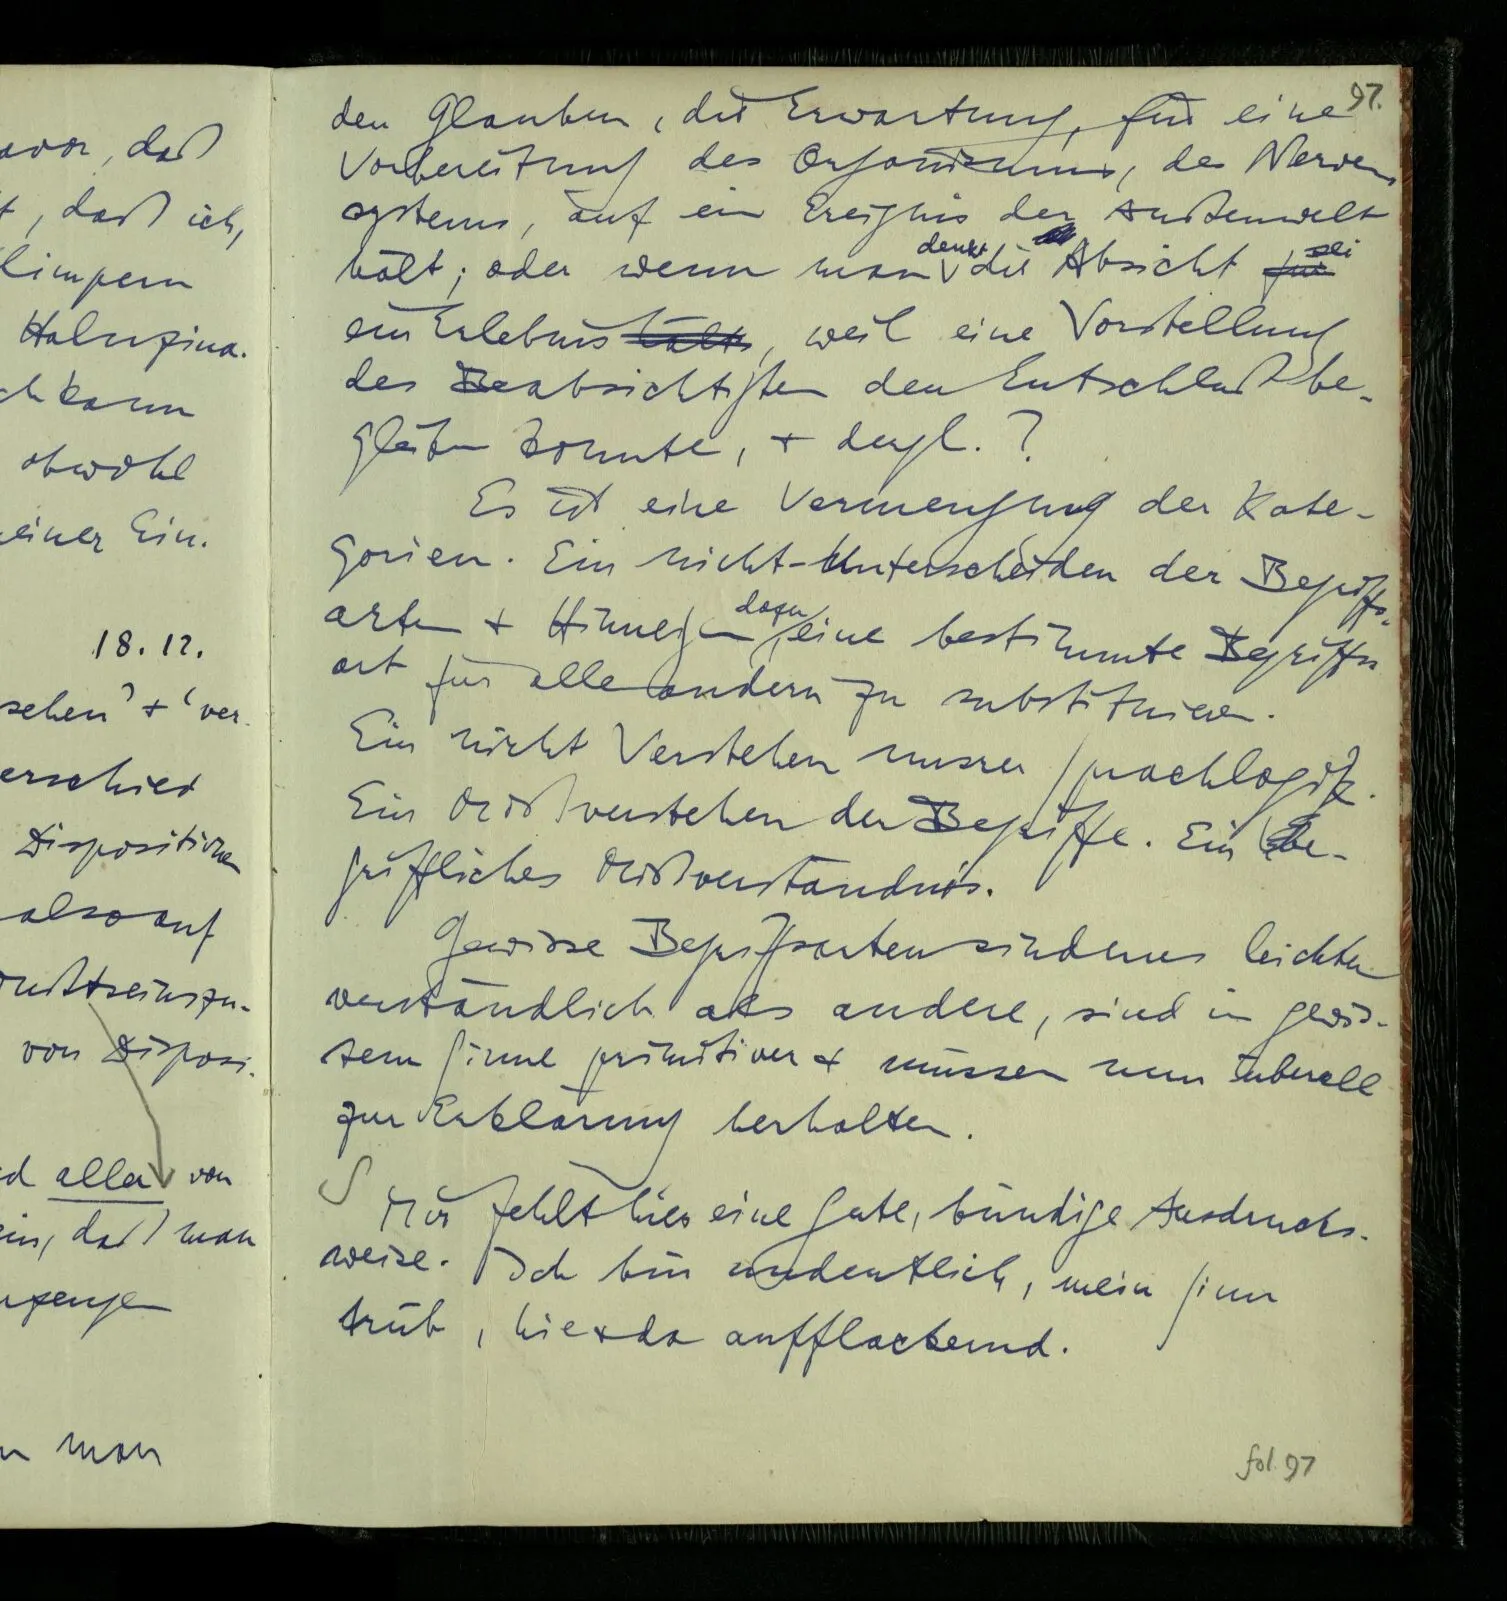 avor, daß
t, daß ich,
limpern
Halufina.
ch kann
obwohl
einer Ein-
18.12.
sehen' + 'ver-
erschied
Dispositionen
also auf
wußtseinszu-
von Disposi-
d alle von
ein, daß man
man
97.
den Glauben, die Erwartung, für eine
Vorbereitung des Organismus, des Nerven-
systems, auf ein Ereignis der Außenwelt
hält; oder wenn man denkt die Absicht für sei
ein Erlebnis hält, weil eine Vorstellung
des Beabsichtigten den Entschluß be-
gleiten konnte, + dergl.?
Es ist eine Vermengung der Kate-
gorien. Ein nicht-Unterscheiden der Begriffs-
arten + Hinneigen dazu, eine bestimmte Begriffs-
art für alle andern zu substituieren.
Ein nicht Verstehen unsrer Sprachlogik.
Ein Mißverstehen der Begriffe. Ein be-
griffliches Mißverständnis.
Gewisse Begriffsarten sind uns leichter
verständlich als andere, sind in gewis-
sem Sinne primitiver + müssen nun überall
zur Erklärung herhalten.
S Mir fehlt hier eine gute, bündige Ausdrucks-
weise. Ich bin undeutlich, mein Sinn
trüb, hie + da aufflackernd.
fol. 97